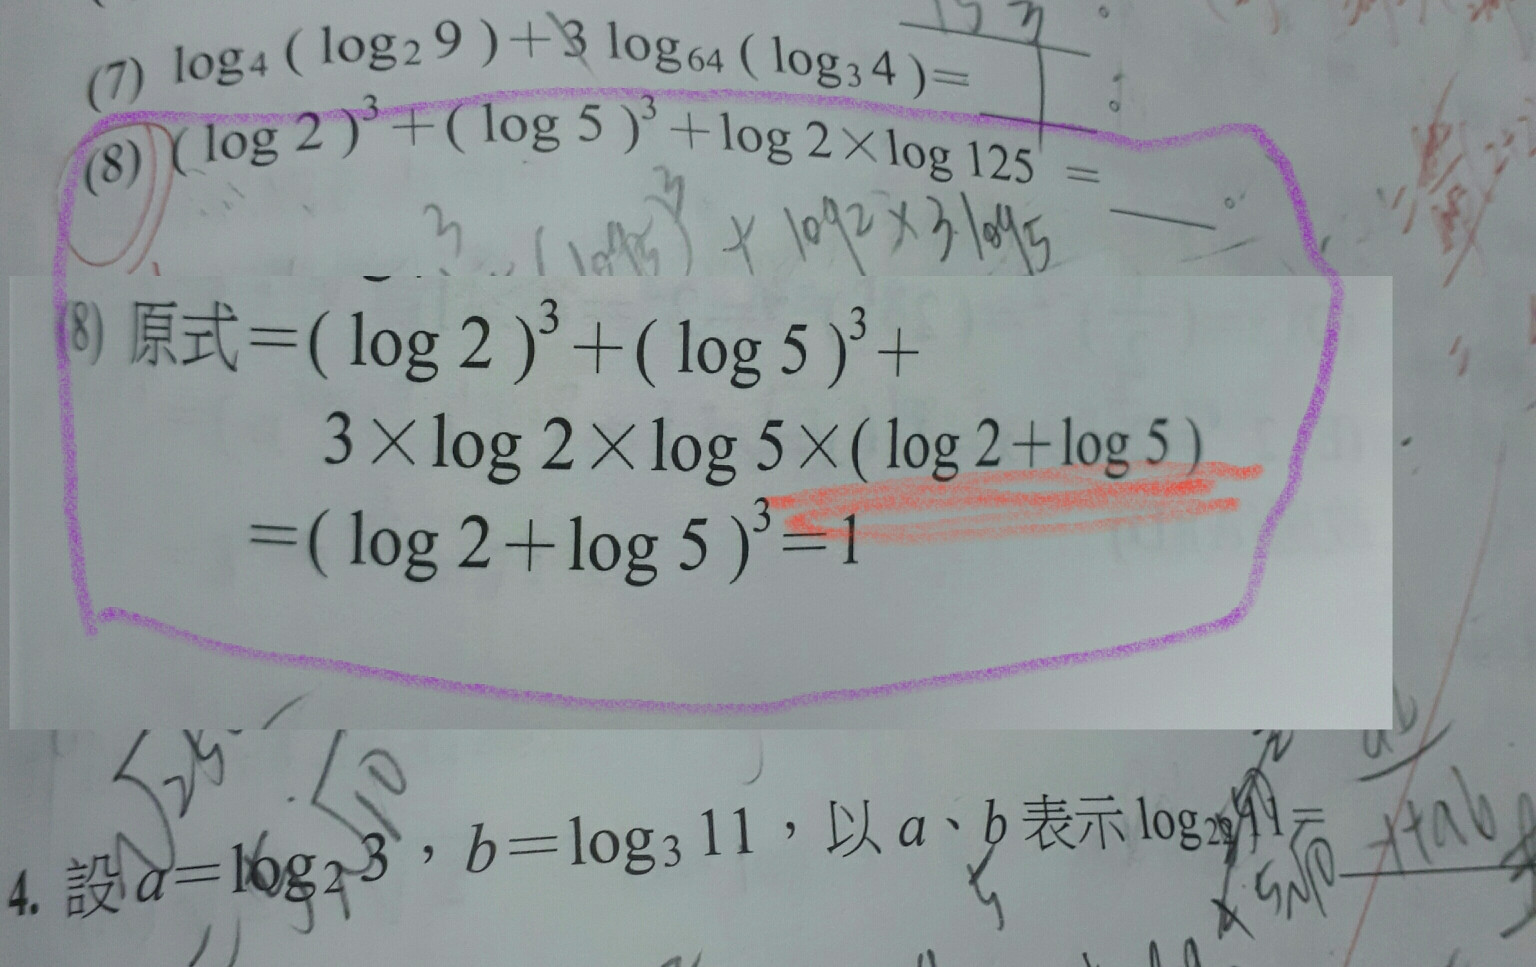 (7) log₄ ( log₂ 9 ) + 3 log₆₄ ( log₃ 4 ) =
(8) ( log 2 )³ + ( log 5 )³ + log 2 × log 125 =
3 (log5)³ + log2 × 3log5
8) 原式 = ( log 2 )³ + ( log 5 )³ +
3 × log 2 × log 5 × ( log 2 + log 5 )
= ( log 2 + log 5 )³ = 1
4. 設 a = log₂ 3 , b = log₃ 11 , 以 a、b 表示 log